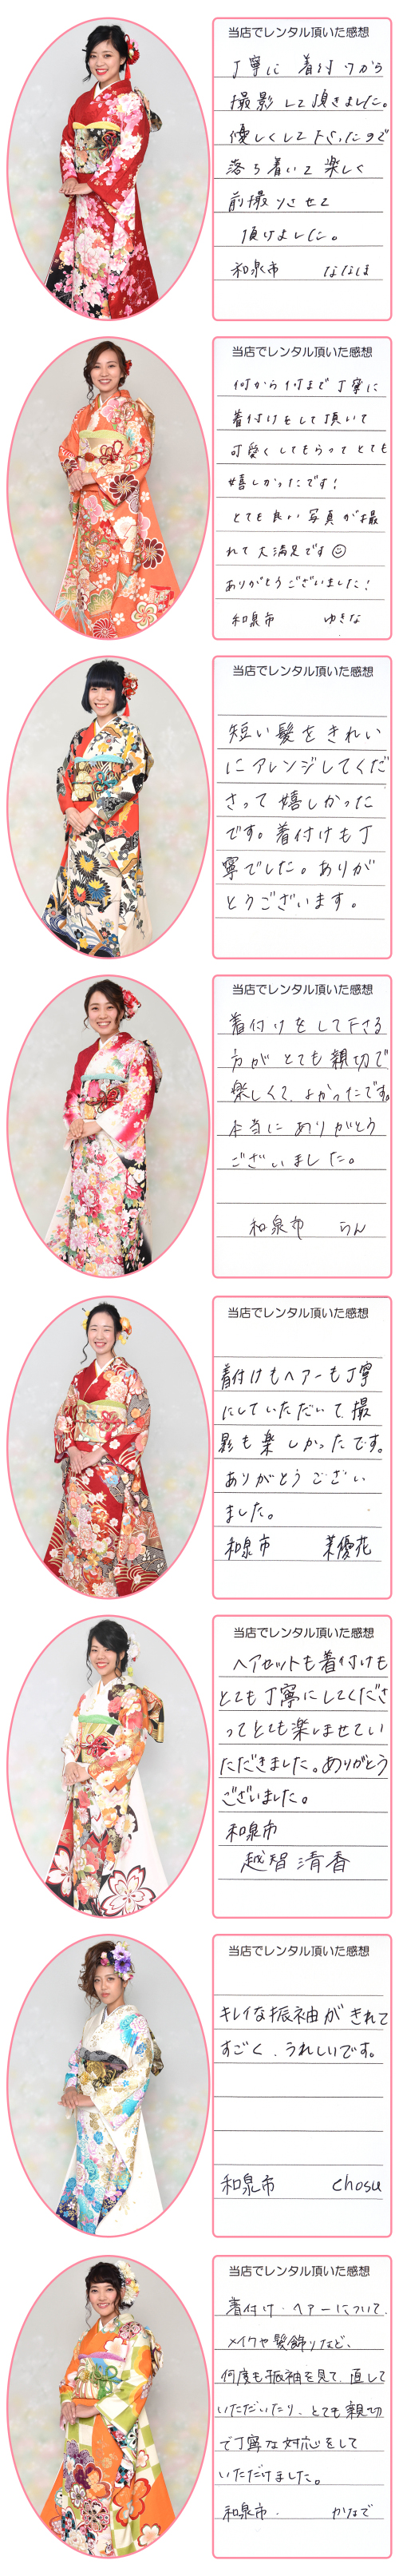 当店でレンタル頂いた感想
丁寧に 着付けから
撮影して頂きました。
優しくして下さったので
落ち着いて 楽しく
前撮りさせて
頂けました。
和泉市 ななほ
当店でレンタル頂いた感想
何から何まで丁寧に
着付けをして頂いて
可愛くしてもらってとても
嬉しかったです!
とても良い写真が撮
れて大満足です☺
ありがとうございました!
和泉市 ゆきな
当店でレンタル頂いた感想
短い髪をきれい
にアレンジしてくだ
さって嬉しかった
です。着付けも丁
寧でした。ありが
とうございます。
当店でレンタル頂いた感想
着付けをして下さる
方がとても親切で
楽しくて、よかったです。
本当にありがとう
ございました。
和泉市 らん
当店でレンタル頂いた感想
着付けもヘアーも丁寧
にしていただいて、撮
影も楽しかったです。
ありがとうござい
ました。
和泉市 茉優花
当店でレンタル頂いた感想
ヘアセットも着付けも
とても丁寧にしてくださ
ってとても楽しませてい
ただきました。ありがとう
ございました。
和泉市
越智清香
当店でレンタル頂いた感想
キレイな振袖がきれて
すごく、うれしいです。
和泉市 chosu
当店でレンタル頂いた感想
着付け・ヘアーについて、
メイクや髪飾りなど、
何度も振袖を見て、直して
いただいたり、とても親切
で丁寧な対応をして
いただけました。
和泉市. かなで